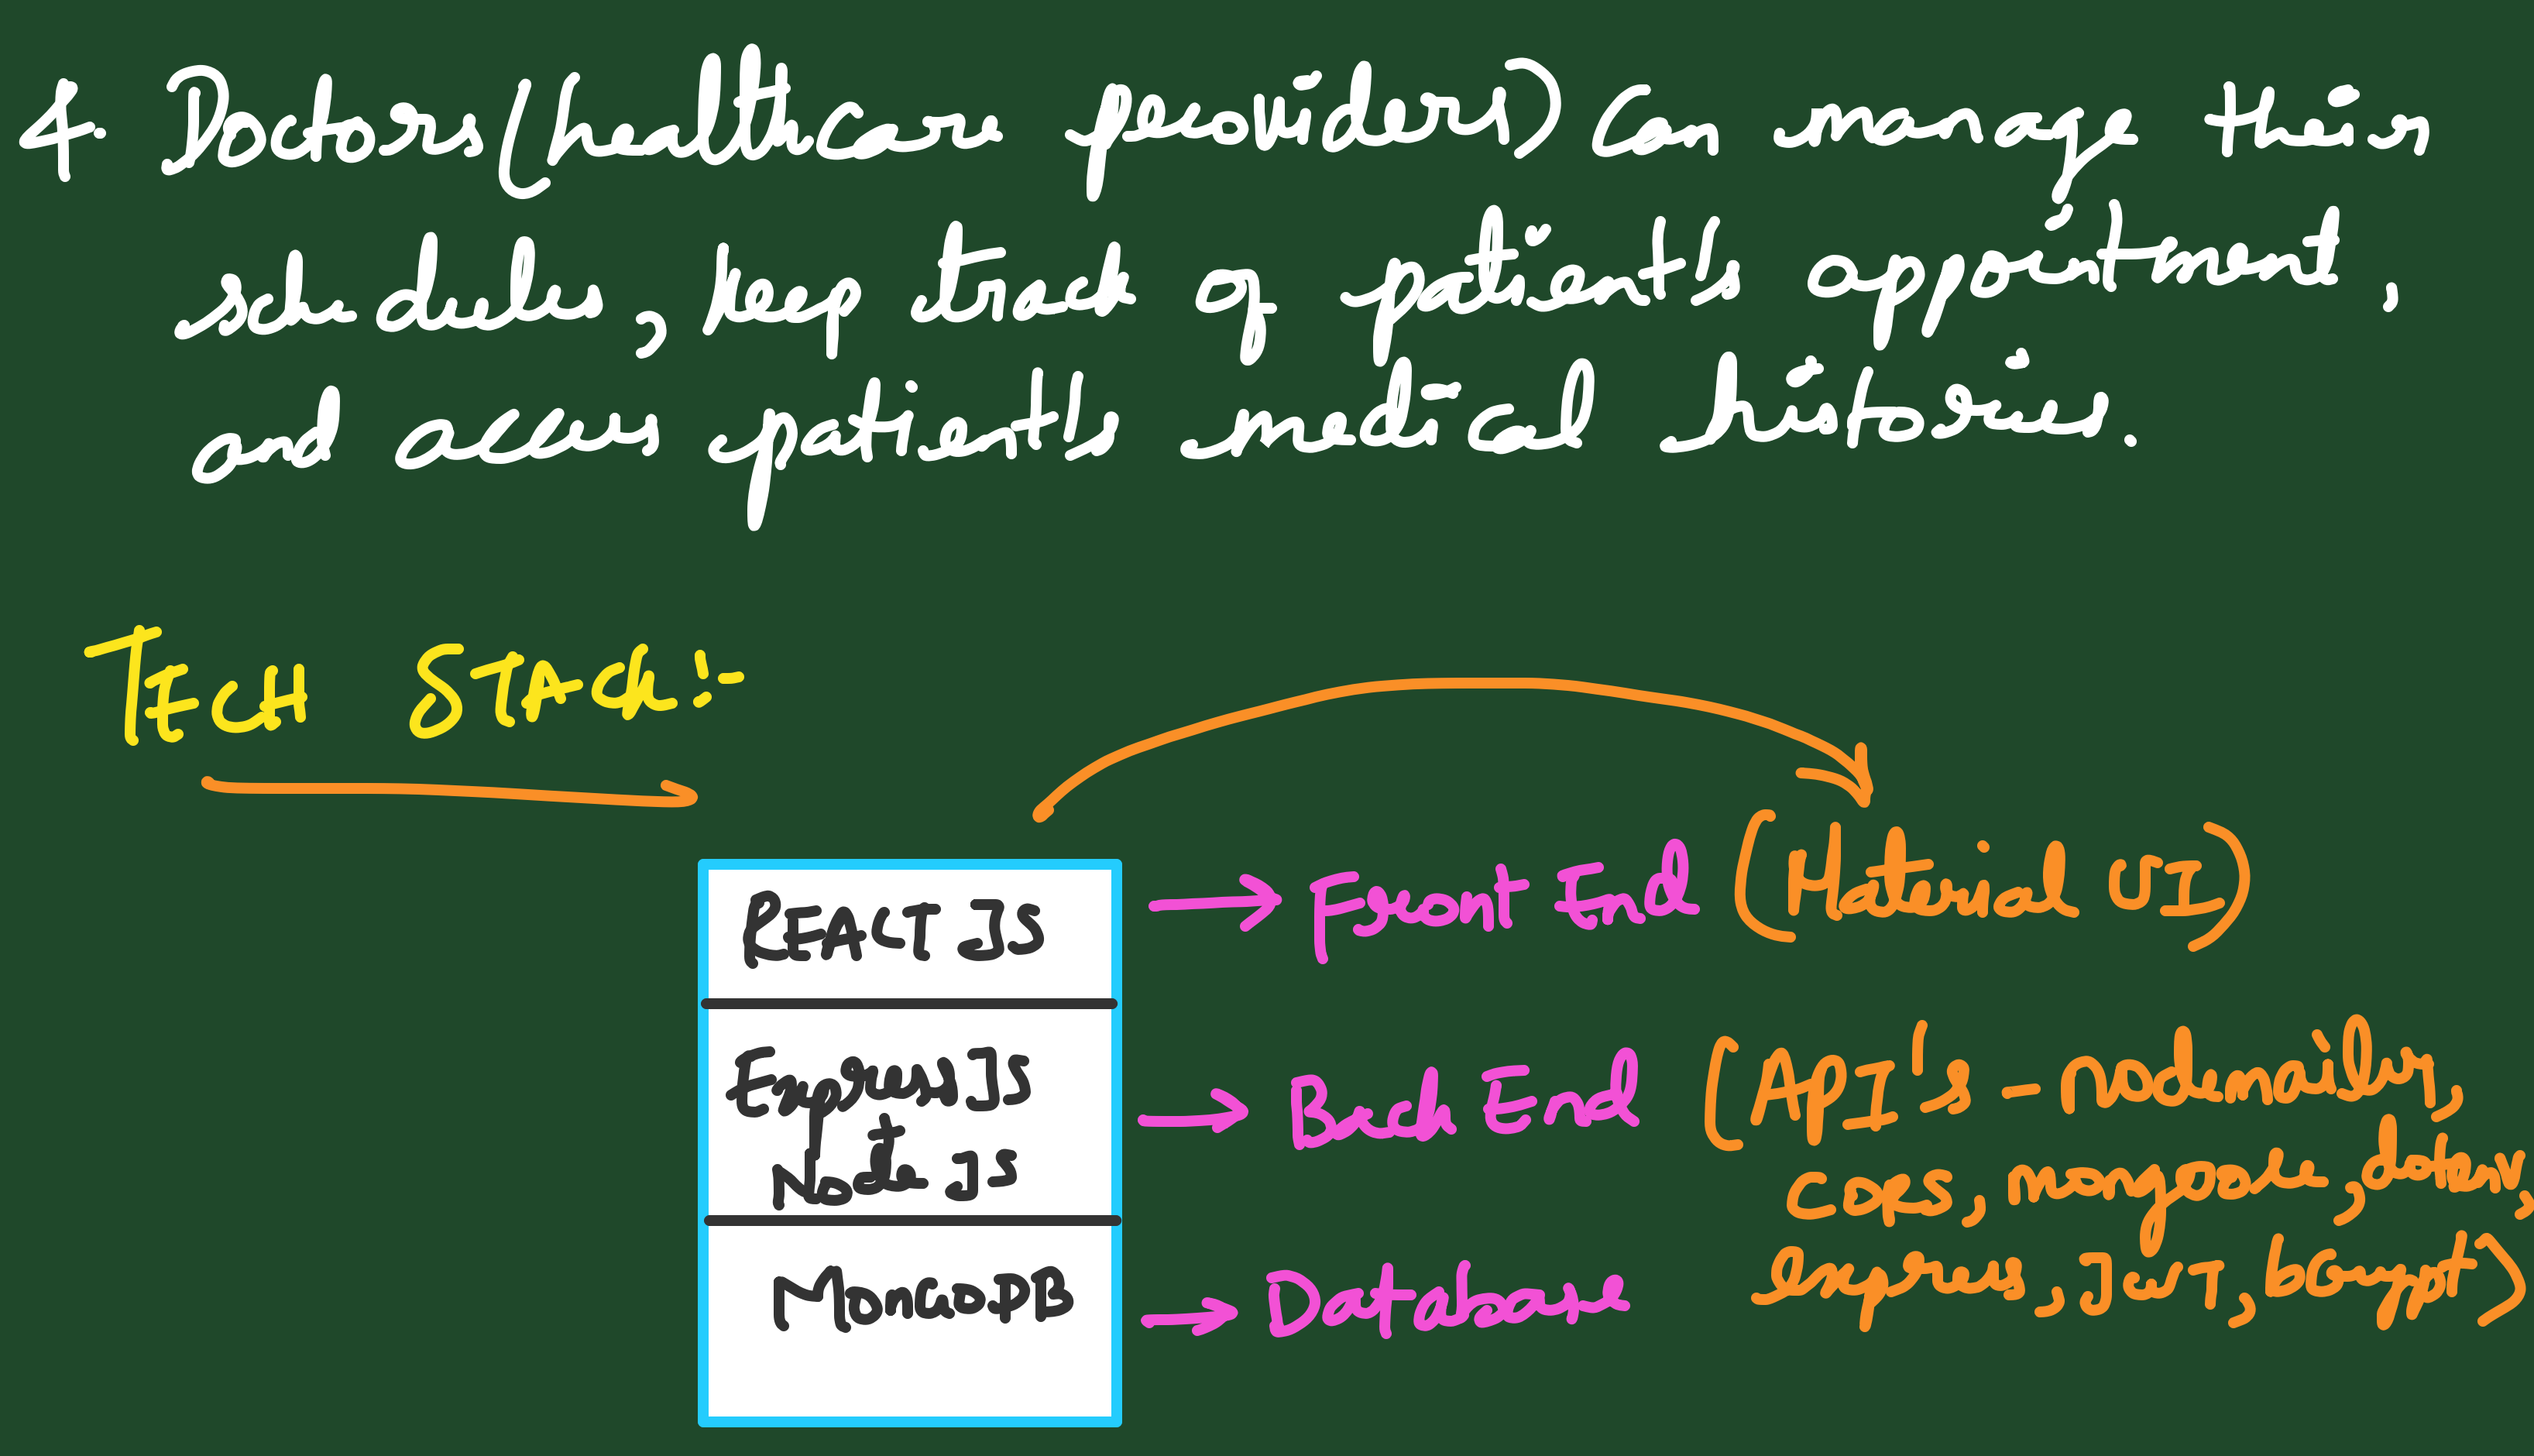 4. Doctors (healthcare providers) can manage their
schedules, keep track of patient's appointment,
and access patient's medical histories.
TECH STACK :-
REACT JS → Front End (Material UI)
Express JS → Back End (API's - nodemailer,
+
Node JS
cors, mongoose, dotenv,
express, JWT, bcrypt)
MONGODB → Database